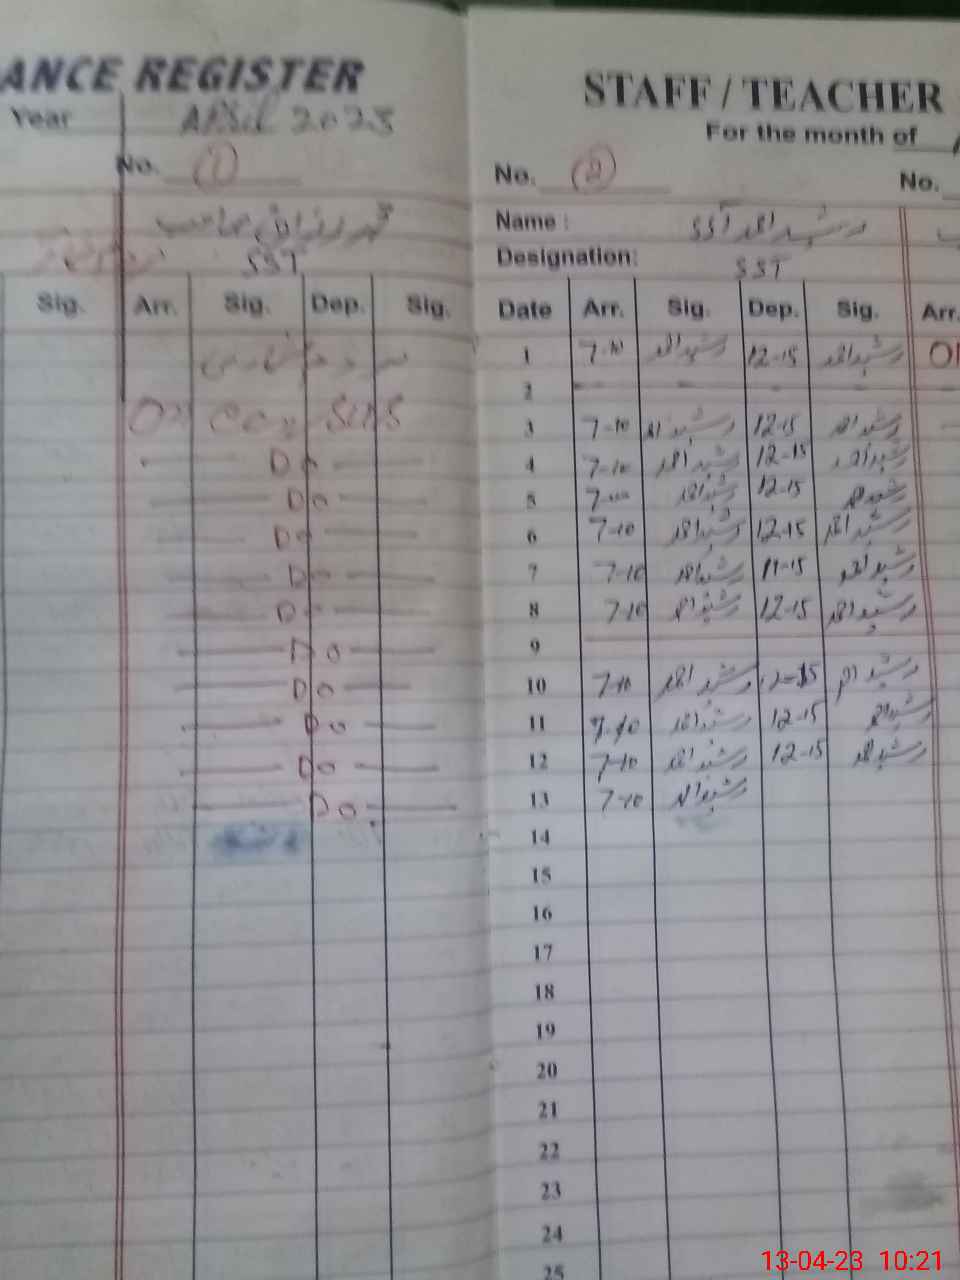 ANCE REGISTER
Year April 2023
No. 1
SST
Sig. Arr. Sig. Dep. Sig.
Do
Do
Do
Do
Do
Do
Do
Do
Do
Do
STAFF / TEACHER
For the month of
No. 2 No.
Name : رشید احمد SST
Designation: SST
Date Arr. Sig. Dep. Sig. Arr.
1 7-10 رشید احمد 12-15 رشید احمد
2
3 7-10 رشید احمد 12-15 رشید احمد
4 7-10 رشید احمد 12-15 رشید احمد
5 رشید احمد 12-15 رشید احمد
6 7-10 رشید احمد 12-15 رشید احمد
7 7-10 رشید احمد رشید احمد
8 7-10 رشید احمد 12-15 رشید احمد
9
10 7-10 رشید احمد 12-15 رشید احمد
11 7-10 رشید احمد 12-15 رشید احمد
12 7-10 رشید احمد 12-15 رشید احمد
13 7-10 رشید احمد
14
15
16
17
18
19
20
21
22
23
24
25
13-04-23 10:21